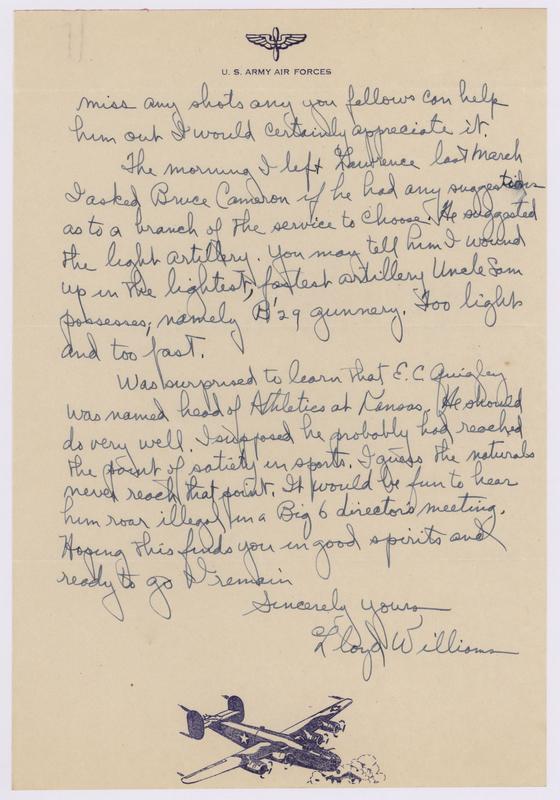 U. S. ARMY AIR FORCES
miss any shots any you fellows can help
him out I would certainly appreciate it.
The morning I left Lawrence last March
I asked Bruce Cameron if he had any suggestions
as to a branch of the service to choose. He suggested
the light artillery. You may tell him I wound
up in the lightest, fastest artillery Uncle Sam
possesses, namely B'29 gunnery. Too light
and too fast.
Was surprised to learn that E. C. Quigley
was named head of Athletics at Kansas. He should
do very well. I supposed he probably had reached
the point of satiety in sports. I guess the naturals
never reach that point. It would be fun to hear
him roar illegal in a Big 6 directors meeting.
Hoping this finds you in good spirits and
ready to go I remain
Sincerely yours
Lloyd Williams